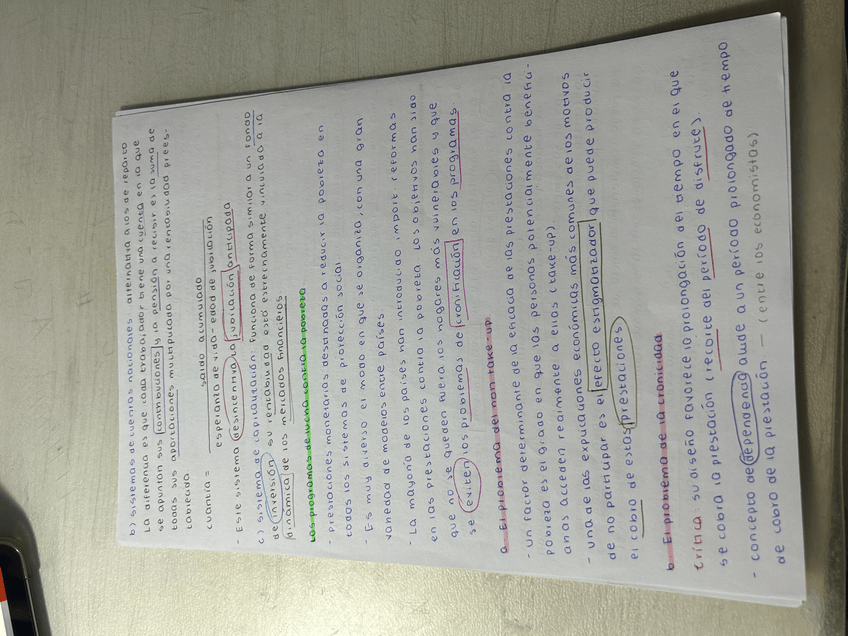 b) sistemas de cuentas nacionales: alternativa a los de reparto
La diferencia es que cada trabajador tiene una cuenta en la que
se apuntan sus contribuciones y la pensión a recibir es la suma de
todas sus aportaciones multiplicado por una rentabilidad prees-
tablecida
saldo acumulado
cuantía =
esperanza de vida - edad de jubilación
Este sistema desincentiva la jubilación anticipada
c) sistema de capitalización: funciona de forma similar a un fondo
de inversión su rentabilidad está estrechamente vinculado a la
dinámica de los mercados financieros
Los programas de lucha contra la pobreza
- Prestaciones monetarias destinadas a reducir la pobreza en
todos los sistemas de protección social
- Es muy diverso el modo en que se organiza, con una gran
variedad de modelos entre países
- La mayoría de los países han introducido import. reformas
en las prestaciones contra la pobreza. Los objetivos han sido
que no se queden fuera los hogares más vulnerables y que
se eviten los problemas de cronificación en los programas
a. El problema del non take-up
- un factor determinante de la eficacia de las prestaciones contra la
pobreza es el grado en que las personas potencialmente benefici-
arias acceden realmente a ellas (take-up)
- una de las explicaciones económicas más comunes de los motivos
de no participar es el efecto estigmatizador que puede producir
el cobro de estas prestaciones
b. El problema de la cronicidad
crítica: su diseño favorece la prolongación del tiempo en el que
se cobra la prestación (recorte del período de disfrute)
- concepto de dependencia alude a un período prolongado de tiempo
de cobro de la prestación — (entre los economistas)